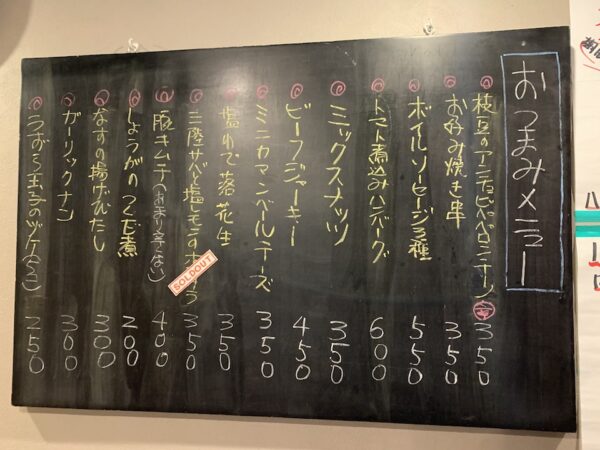 おつまみメニュー
枝豆のアンチョビペペロンチーノ 350
お好み焼き串 350
ボイルソーセージ3種 550
トマト煮込みハンバーグ 600
ミックスナッツ 350
ビーフジャーキー 450
ミニカマンベールチーズ 350
塩ゆで落花生 350
三陸サバ 350
SOLDOUT
豚キムチ(あまり辛くない) 400
しょうがのつくだ煮 200
なすの揚げびたし 300
ガーリックナン 300
うずら玉子のヅケ(5こ) 250